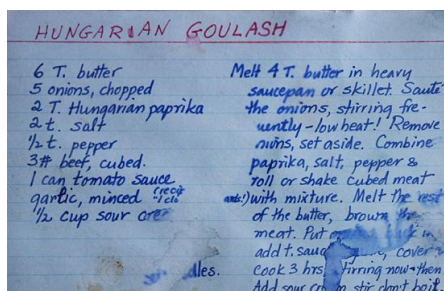 HUNGARIAN GOULASH
6 T. butter
5 onions, chopped
2 T. Hungarian paprika
2 t. salt
1/2 t. pepper
3# beef, cubed.
1 can tomato sauce
garlic, minced
1/2 cup sour
Melt 4 T. butter in heavy
saucepan or skillet. Sauté
the onions, stirring fre-
uently - low heat! Remove
set aside. Combine
paprika, salt, pepper &
roll or shake cubed meat
with mixture. Melt the rest
of the butter, brown the
meat. Put
add t. cover
cook 3 hrs, stirring now + then
Add sour stir don't boil.